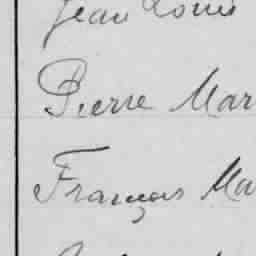 Jean Louis
Pierre Mar
François Ma